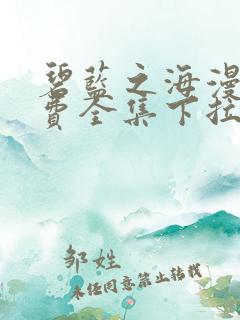 碧蓝之海漫
费全集下拉
邹姓
未经同意禁止转载